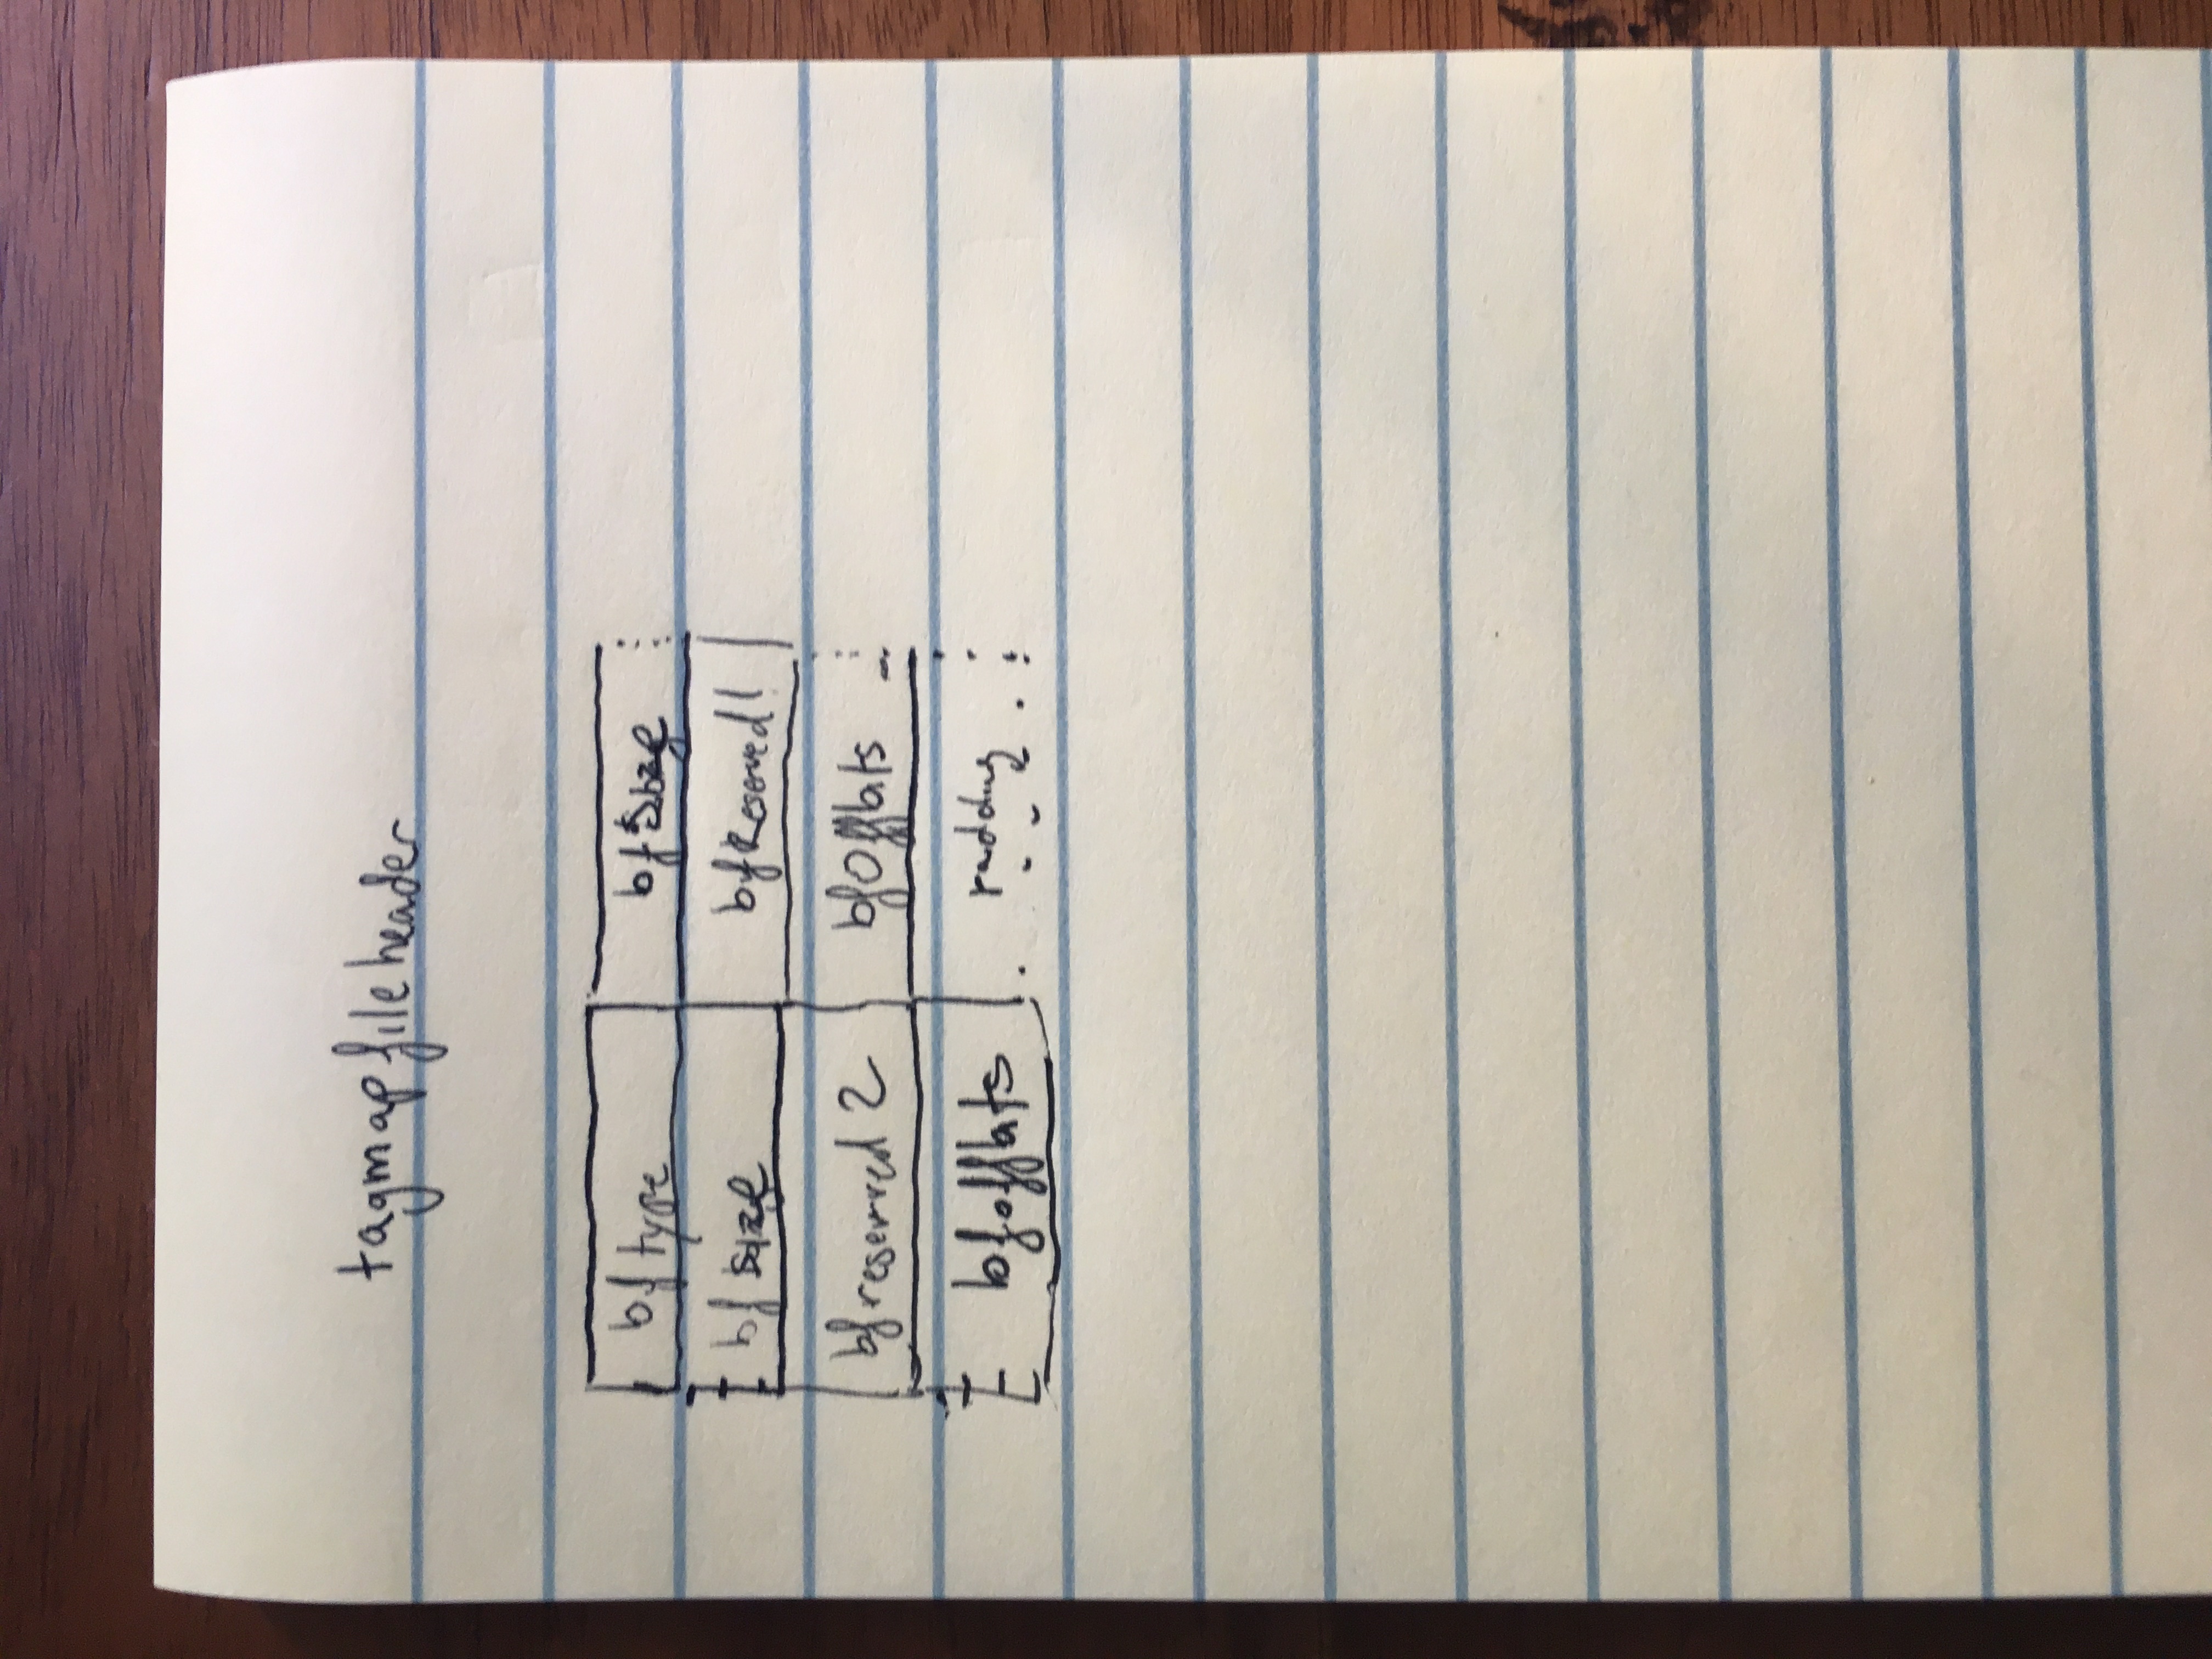 tagmap file header
bf type bf Size
bf size bf Reserved1
bf reserved 2 bf Offbits
bf offbits padding